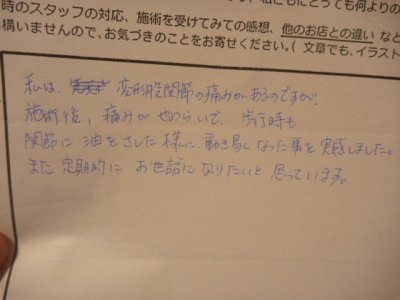 時のスタッフの対応、施術を受けてみての感想、他のお店との違いなど
構いませんので、お気づきのことをお寄せください。(文章でも、イラスト
私は、変形股関節の痛みがあるのですが、
施術後、痛みがやわらいで、歩行時も
関節に油をさした様に動き易くなった事を実感しました。
また定期的にお世話になりたいと思っています。